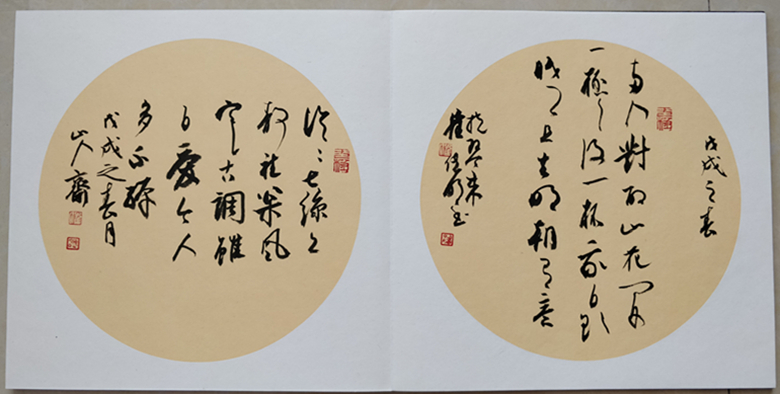 戊戌之春
兩人對酌山花開
一杯々復一杯我醉欲
眠卿且去明朝有意
抱琴来
泠々七弦上
靜聽松風
寒古調雖
自愛今人
多不彈
戊戌之春月
山人齋